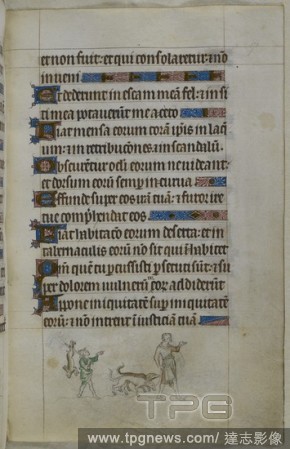 et non fuit: et qui consolaretur: nō
inueni
Et dederunt in escam meā fel: et in si
ti mea potauerūt me aceto
Fiat mensa eorum corā ipsis in laq
um: in retribuciones, in scandalū
Obscurētur oc̄li eorum ne uideant:
et dorsum eorū semp̄ incurua
Effunde super eos irā tuā: et furor ire
tue comp̄hendat eos
Fiat habitacō eorum deserta: et in
tabernaculis eorū nō sit qui īhabitet
Qm̄ quē tu p̄cussisti p̄secuti sūt: et su
per dolorem uulnerū meorū addiderūt
Appone iniquitatē sup̄ iniquitatē
eorū: et nō intrent ī iusticiā tuā
TPG
www.tpgnews.com/ 達志影像